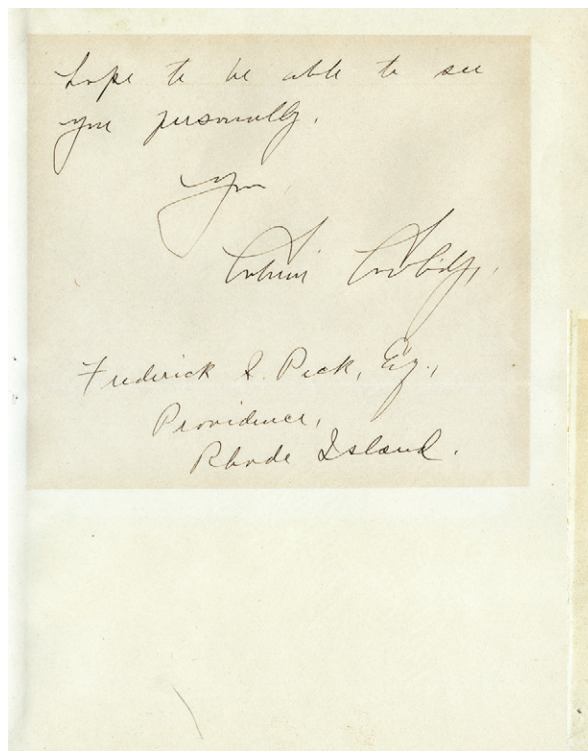 hope to be able to see
you personally.
Yours
Calvin Coolidge.
Frederick S. Peck, Esq.,
Providence,
Rhode Island.